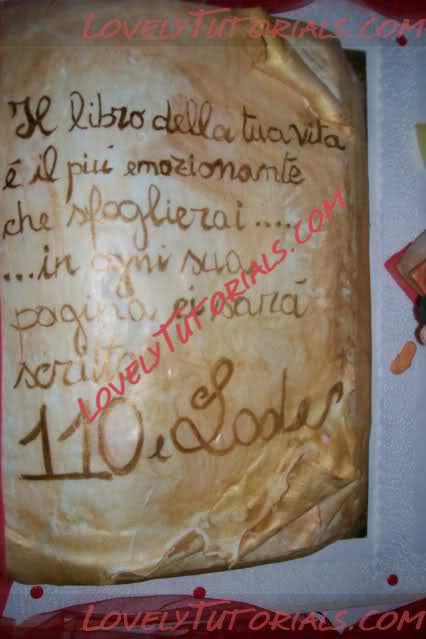 LOVELYTUTORIALS.COM
Il libro della tua vita
é il piú emozionante
che sfoglierai .....
...in ogni sua
pagina ci sará
scritto
110 e Lode
LOVELYTUTORIALS.COM
LOVELYTUTORIALS.COM